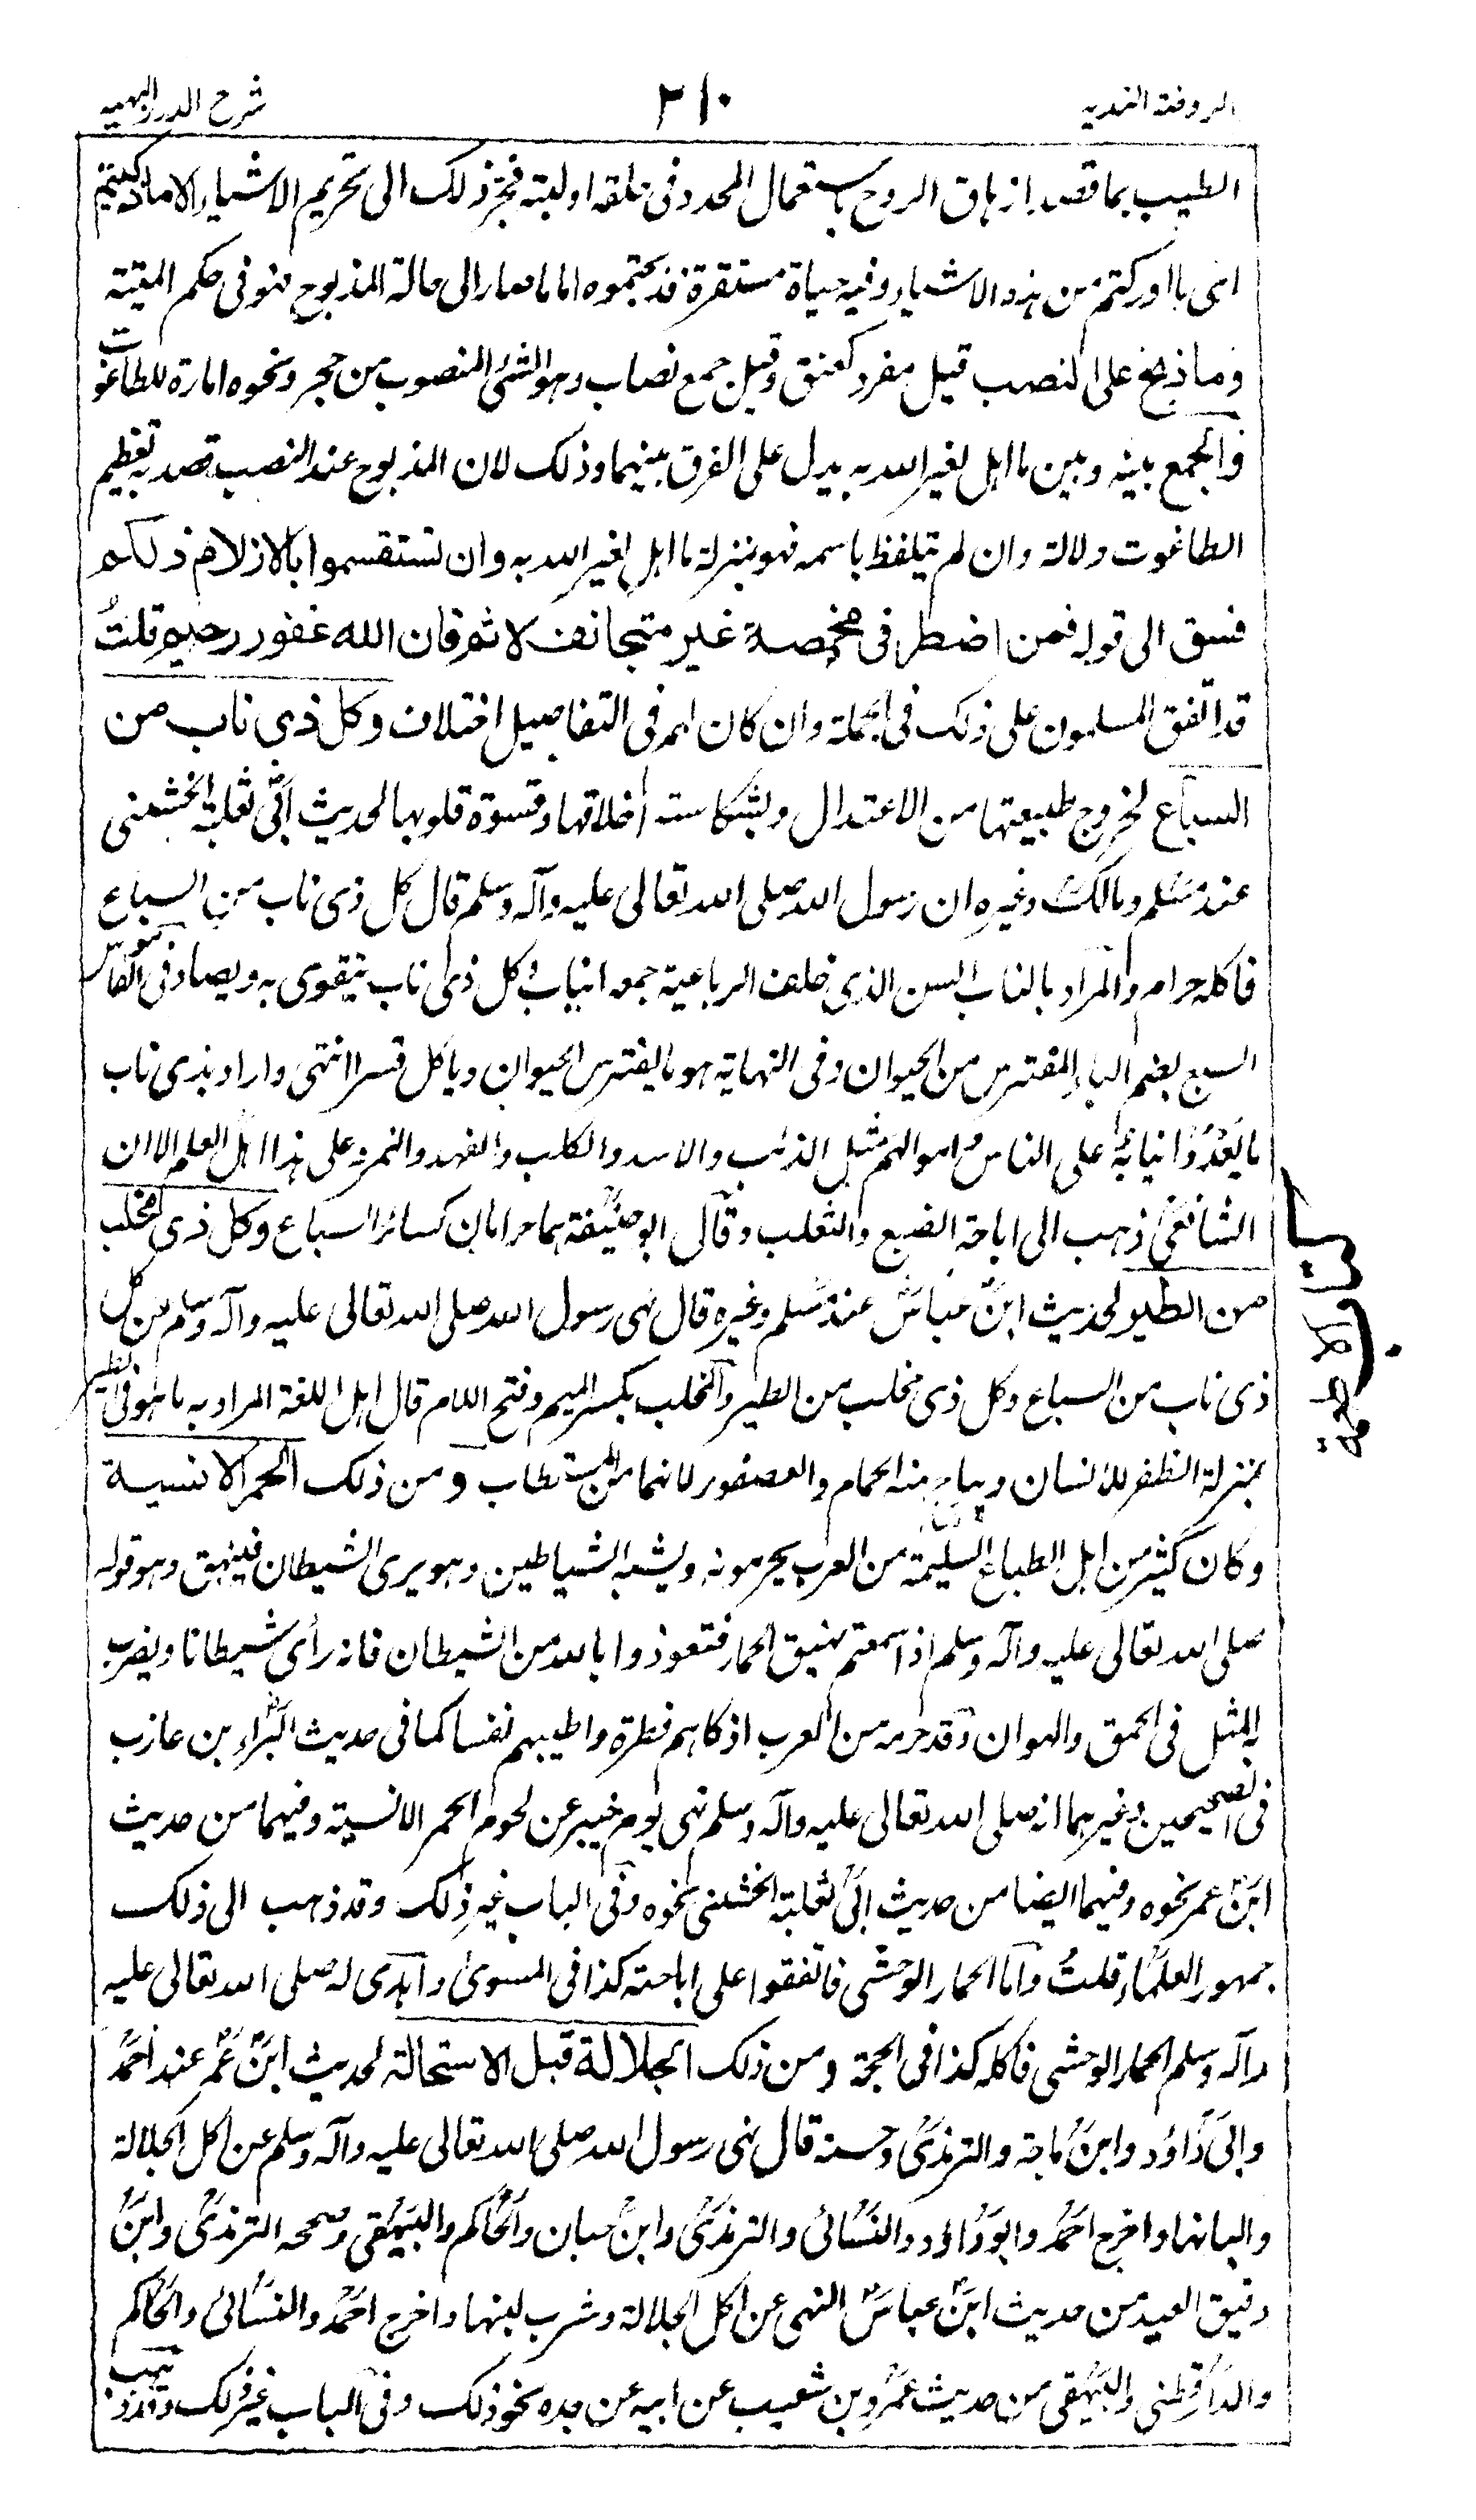 الروضة الندية
٣١٠
شرح الدرر البهية
الطيب بما قصد ازهاق الروح باستعمال المحدد فى حلقه او لبته فجر ذلك الى تحريم الاشياء الا ما ذكيتم
اى ما ادركتم من هذه الاشياء وفيه حياة مستقرة فذبحتموه اما ما صار الى حالة المذبوح فهو فى حكم الميتة
وما ذبح على النصب قيل مفرد كعنق وقيل جمع نصاب وهو الشئ المنصوب من حجر ونحوه امارة للطاغوت
والجمع بينه وبين ما اهل لغير الله به يدل على الفرق بينهما وذلك لان المذبوح عند النصب قصد به تعظيم
الطاغوت دلالة وان لم يتلفظ باسمه فهو بمنزلة ما اهل لغير الله به وان تستقسموا بالازلام ذلكم
فسق الى قوله فمن اضطر فى مخمصة غير متجانف لاثم فان الله غفور رحيم قلت
قد اتفق المسلمون على ذلك فى الجملة وان كان لهم فى التفاصيل اختلاف وكل ذى ناب من
السباع لخروج طبيعتها من الاعتدال ولشكاسة اخلاقها وقسوة قلوبها لحديث ابى ثعلبة الخشنى
عند مسلم ومالك وغيره ان رسول الله صلى الله تعالى عليه وآله وسلم قال كل ذى ناب من السباع
فاكله حرام والمراد بالناب السن الذى خلف الرباعية جمعه انياب كل ذى ناب يتقوى به ويصاد فى القاموس
السبع بضم الباء المفترس من الحيوان وفى النهاية هو ما يفترس الحيوان وياكل قسرا انتهى واراد بذى ناب
ما يعدو بانيابه على الناس واموالهم مثل الذئب والاسد والكلب والفهد والنمر وعلى هذا اهل العلم الا ان
الشافعى ذهب الى اباحة الضبع والثعلب وقال ابو حنيفة هما حرامان كسائر السباع وكل ذى مخلب
من الطير لحديث ابن عباس عند مسلم وغيره قال نهى رسول الله صلى الله تعالى عليه وآله وسلم عن كل
ذى ناب من السباع وكل ذى مخلب من الطير والمخلب بكسر الميم وفتح اللام قال اهل اللغة المراد به ما هو فى الطير
بمنزلة الظفر للانسان ويباح منه الحمام والعصفور لانهما من المستطاب ومن ذلك الحمر الانسية
وكان كثير من اهل الطباع السليمة من العرب يحرمونه ويشبه الشياطين وهو يرى الشيطان فينهق وهو قوله
صلى الله تعالى عليه وآله وسلم اذا سمعتم نهيق الحمار فتعوذوا بالله من الشيطان فانه رأى شيطانا ويضرب
به المثل فى الحمق والهوان وقد حرمه من العرب اذكاهم فطرة واطيبهم نفسا كما فى حديث البراء بن عازب
فى الصحيحين وغيرهما انه صلى الله تعالى عليه وآله وسلم نهى يوم خيبر عن لحوم الحمر الانسية وفيهما من حديث
ابن عمر نحوه وفيهما ايضا من حديث ابى ثعلبة الخشنى نحوه وفى الباب غير ذلك وقد ذهب الى ذلك
جمهور العلماء قلت واما الحمار الوحشى فاتفقوا على اباحته كذا فى المسوى واهدى له صلى الله تعالى عليه
وآله وسلم الحمار الوحشى فاكله كذا فى الحجة ومن ذلك الجلالة قبل الاستحالة لحديث ابن عمر عند احمد
وابى داؤد وابن ماجة والترمذى وحسنه قال نهى رسول الله صلى الله تعالى عليه وآله وسلم عن اكل الجلالة
والبانها واخرج احمد وابو داؤد والنسائى والترمذى وابن حبان والحاكم والبيهقى وصححه الترمذى وابن
دقيق العيد من حديث ابن عباس النهى عن اكل الجلالة وشرب لبنها واخرج احمد والنسائى والحاكم
والدارقطنى والبيهقى من حديث عمرو بن شعيب عن ابيه عن جده نحو ذلك وفى الباب غير ذلك وقد ذهب